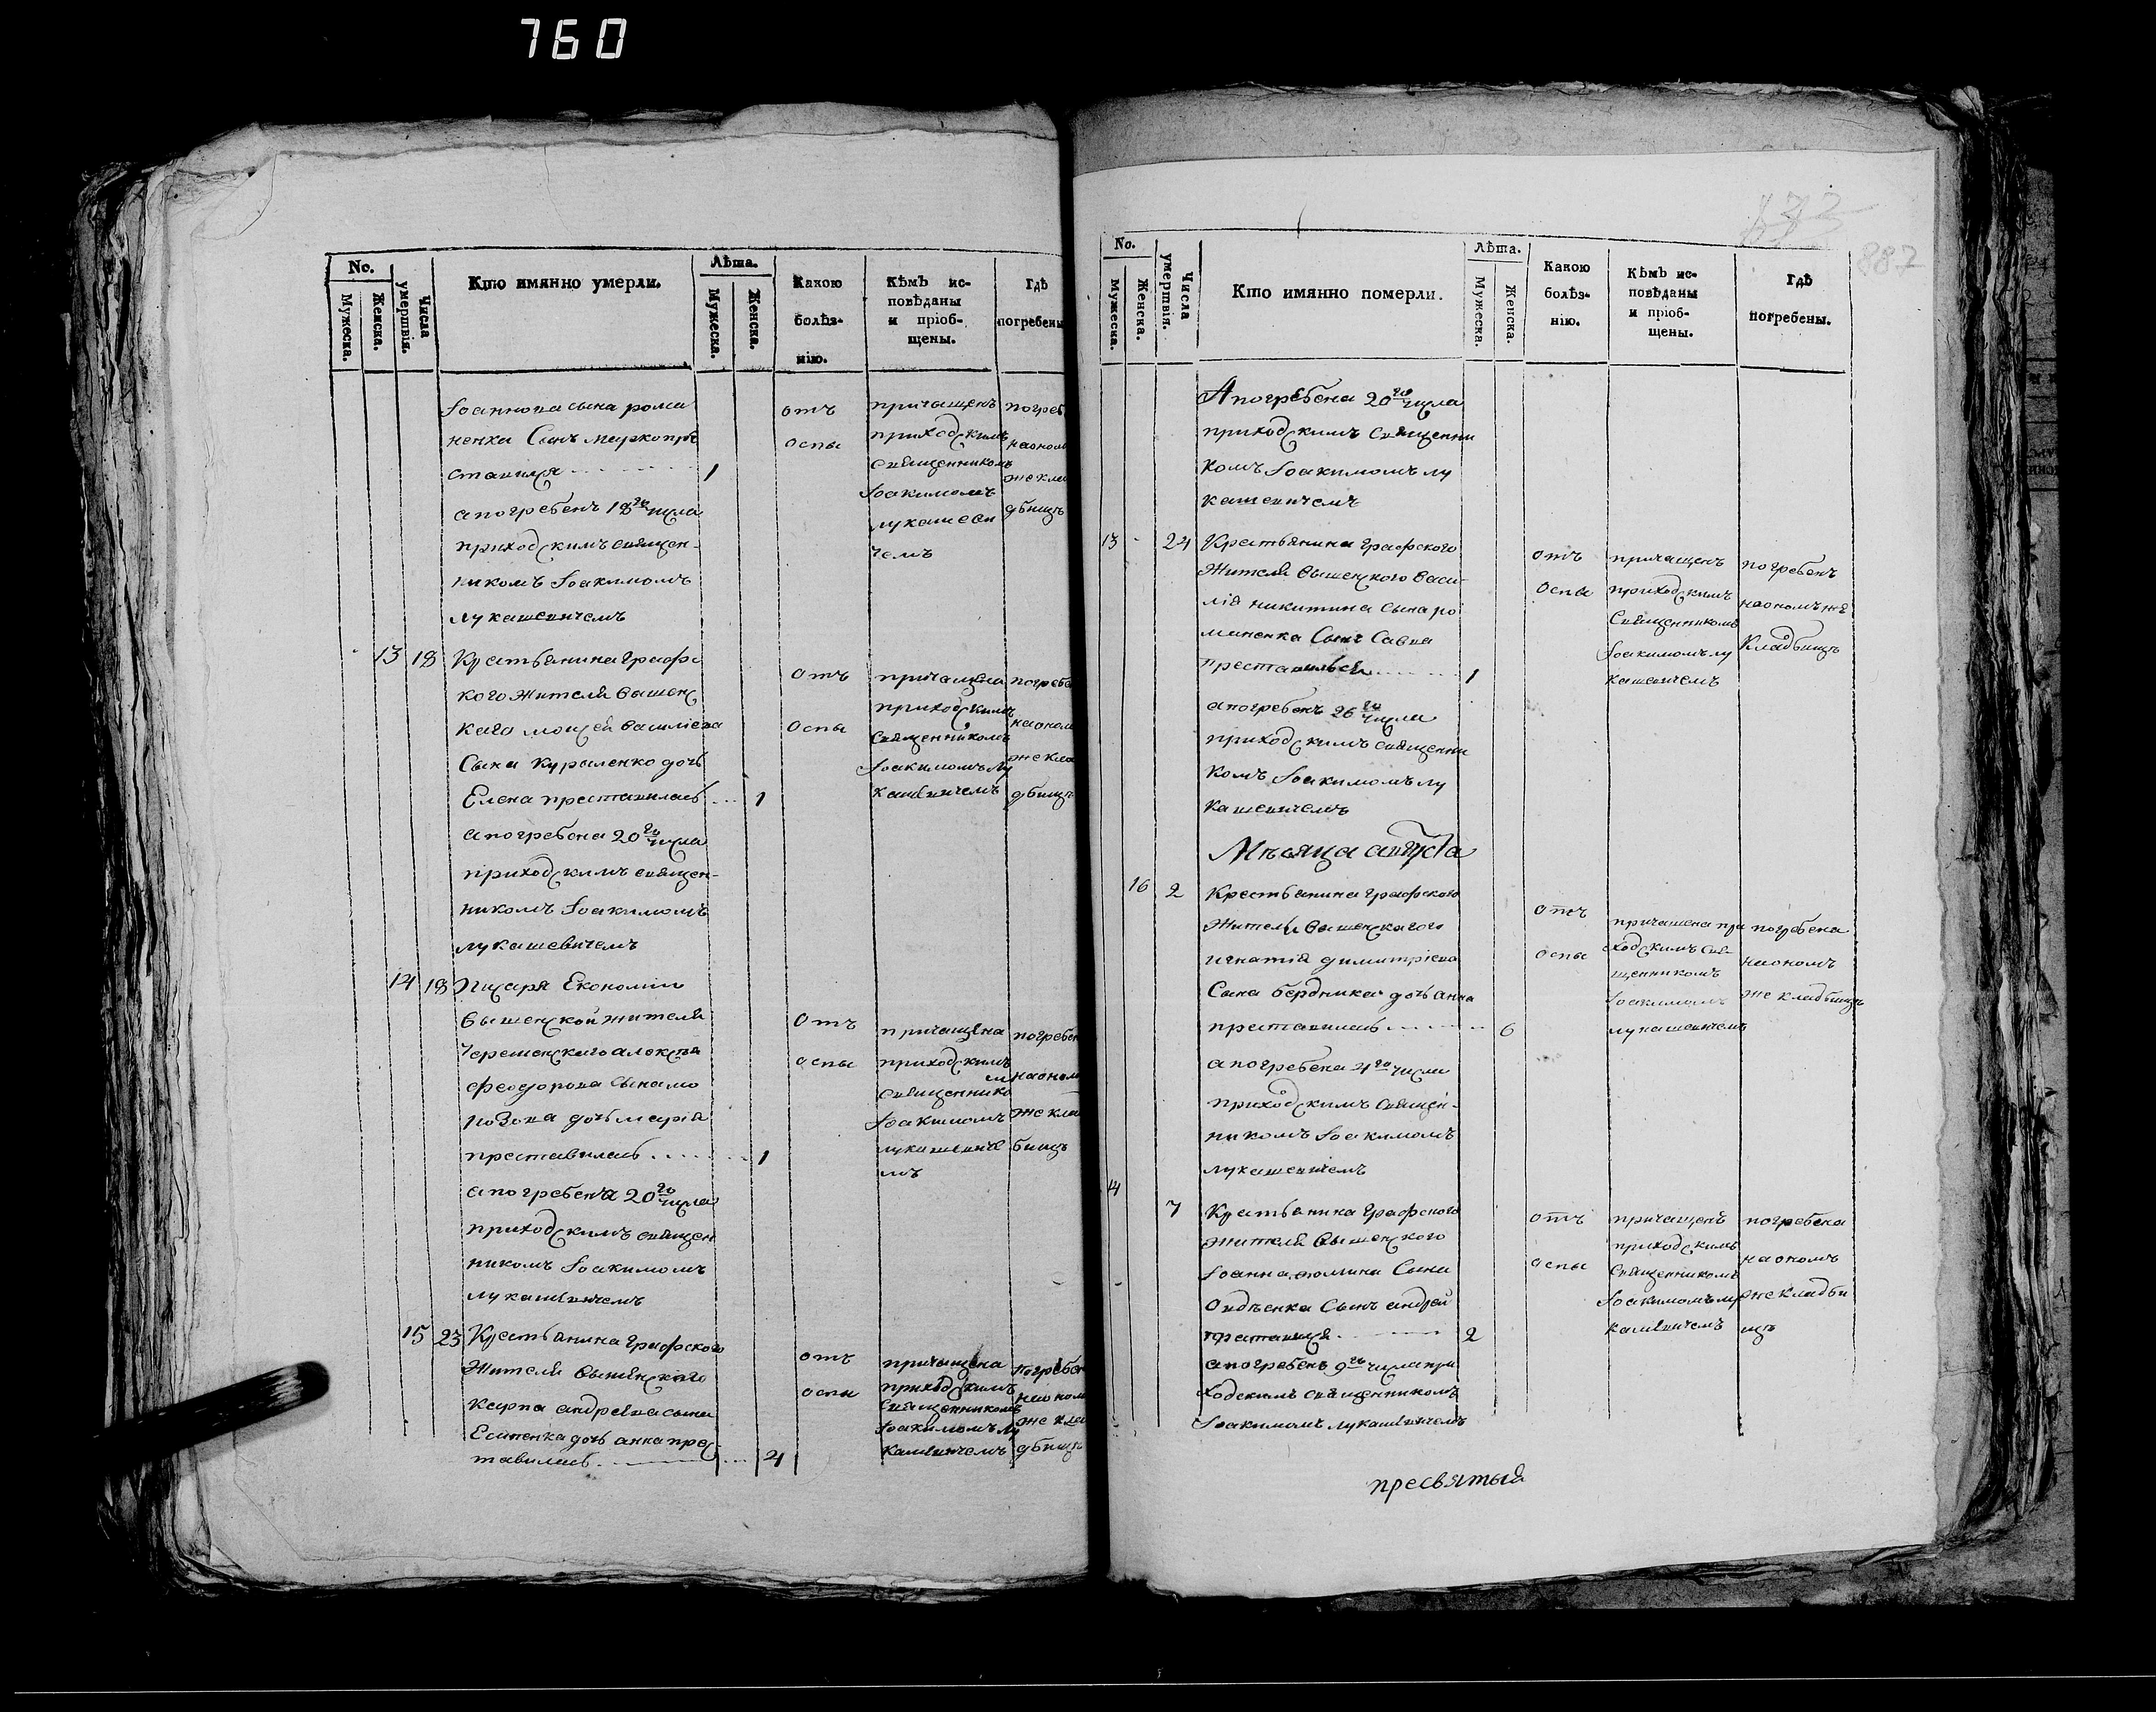 760
No.
Мужеска.
Женска.
Числа умертвія.
Кто имянно умерли.
Лѣта.
Мужеска.
Женска.
Какою болѣз-нію.
Кѣмъ ис-повѣданы и пріоб-щены.
Гдѣ погребены
Іоаннова сына рома
ненка Сынъ марко пре
ставился 1
а погребенъ 18го числа
приходскимъ священ-
никомъ Іоакимомъ
лукашевичемъ
отъ
оспы
причащенъ
приходскимъ
священникомъ
Іоакимомъ
лукашеви
чемъ
погреб
на оном
же кла
дбищъ
13 18 Крестьянина Графс
кого жителя вышенс
каго мойсея василіева
Сына Куриленко дочь
Елена преставилась 1
а погребена 20го числа
приходскимъ священ-
никомъ Іоакимомъ
лукашевичемъ
отъ
оспы
причащена
приходскимъ
священникомъ
Іоакимомъ лу
кашевичемъ
погребе
на оном
же кла
дбищъ
14 18 Писаря Економіи
вышенской жителя
феодорова сына мо
дочь марія
преставилась 1
а погребена 20го числа
приходскимъ священ
никомъ Іоакимомъ
лукашевичемъ
отъ
оспы
причащена
приходскимъ
священнико
м
Іоакимомъ
лукашевиче
мъ
погребен
на оном
же кла
бищъ
15 23 Крестьянина Графского
жителя вышенского
карпа андреева сына
Есипенка дочь анна прес-
тавилась 4
отъ
оспы
причащена
приходскимъ
священникомъ
Іоакимомъ лу
кашевичемъ
погребен
на оном
же кла
дбищъ
887
No.
Мужеска.
Женска.
Числа умертвія.
Кто имянно померли.
Лѣта.
Мужеска.
Женска.
Какою болѣз-нію.
Кѣмъ ис-повѣданы и пріоб-щены.
Гдѣ погребены.
А погребена 20го числа
приходскимъ священни
комъ Іоакимомъ лу
кашевичемъ
13 24 Крестьянина Графского
жителя вышенского васи-
лія никитина сына ро
маненка Сынъ Савва
преставился 1
а погребенъ 26го числа
приходскимъ священни
комъ Іоакимомъ лу
кашевичемъ
отъ
оспы
причащенъ
приходскимъ
священникомъ
Іоакимомъ лу
кашевичемъ
погребенъ
на ономъ же
кладбищъ
Мѣсяца августа
16 2 Крестьянина Графского
жителя вышенскаго
игнатія димитріева
Сына бердника дочь анна
преставилась 6
а погребена 4го числа
приходскимъ священ-
никомъ Іоакимомъ
лукашевичемъ
отъ
оспы
причащена при
ходскимъ свя-
щенникомъ
Іоакимомъ
лукашевичемъ
погребена
на ономъ
же кладбищъ
14 7 Крестьянина Графского
жителя вышенского
Іоанна Сына
Сынъ андрей
преставися 2
а погребенъ 9го числа при
ходскимъ священникомъ
Іоакимомъ лукашевичемъ
отъ
оспы
причащенъ
приходскимъ
священникомъ
Іоакимомъ лу
кашевичемъ
погребена
на ономъ
же кладби
щъ
пресвятыя